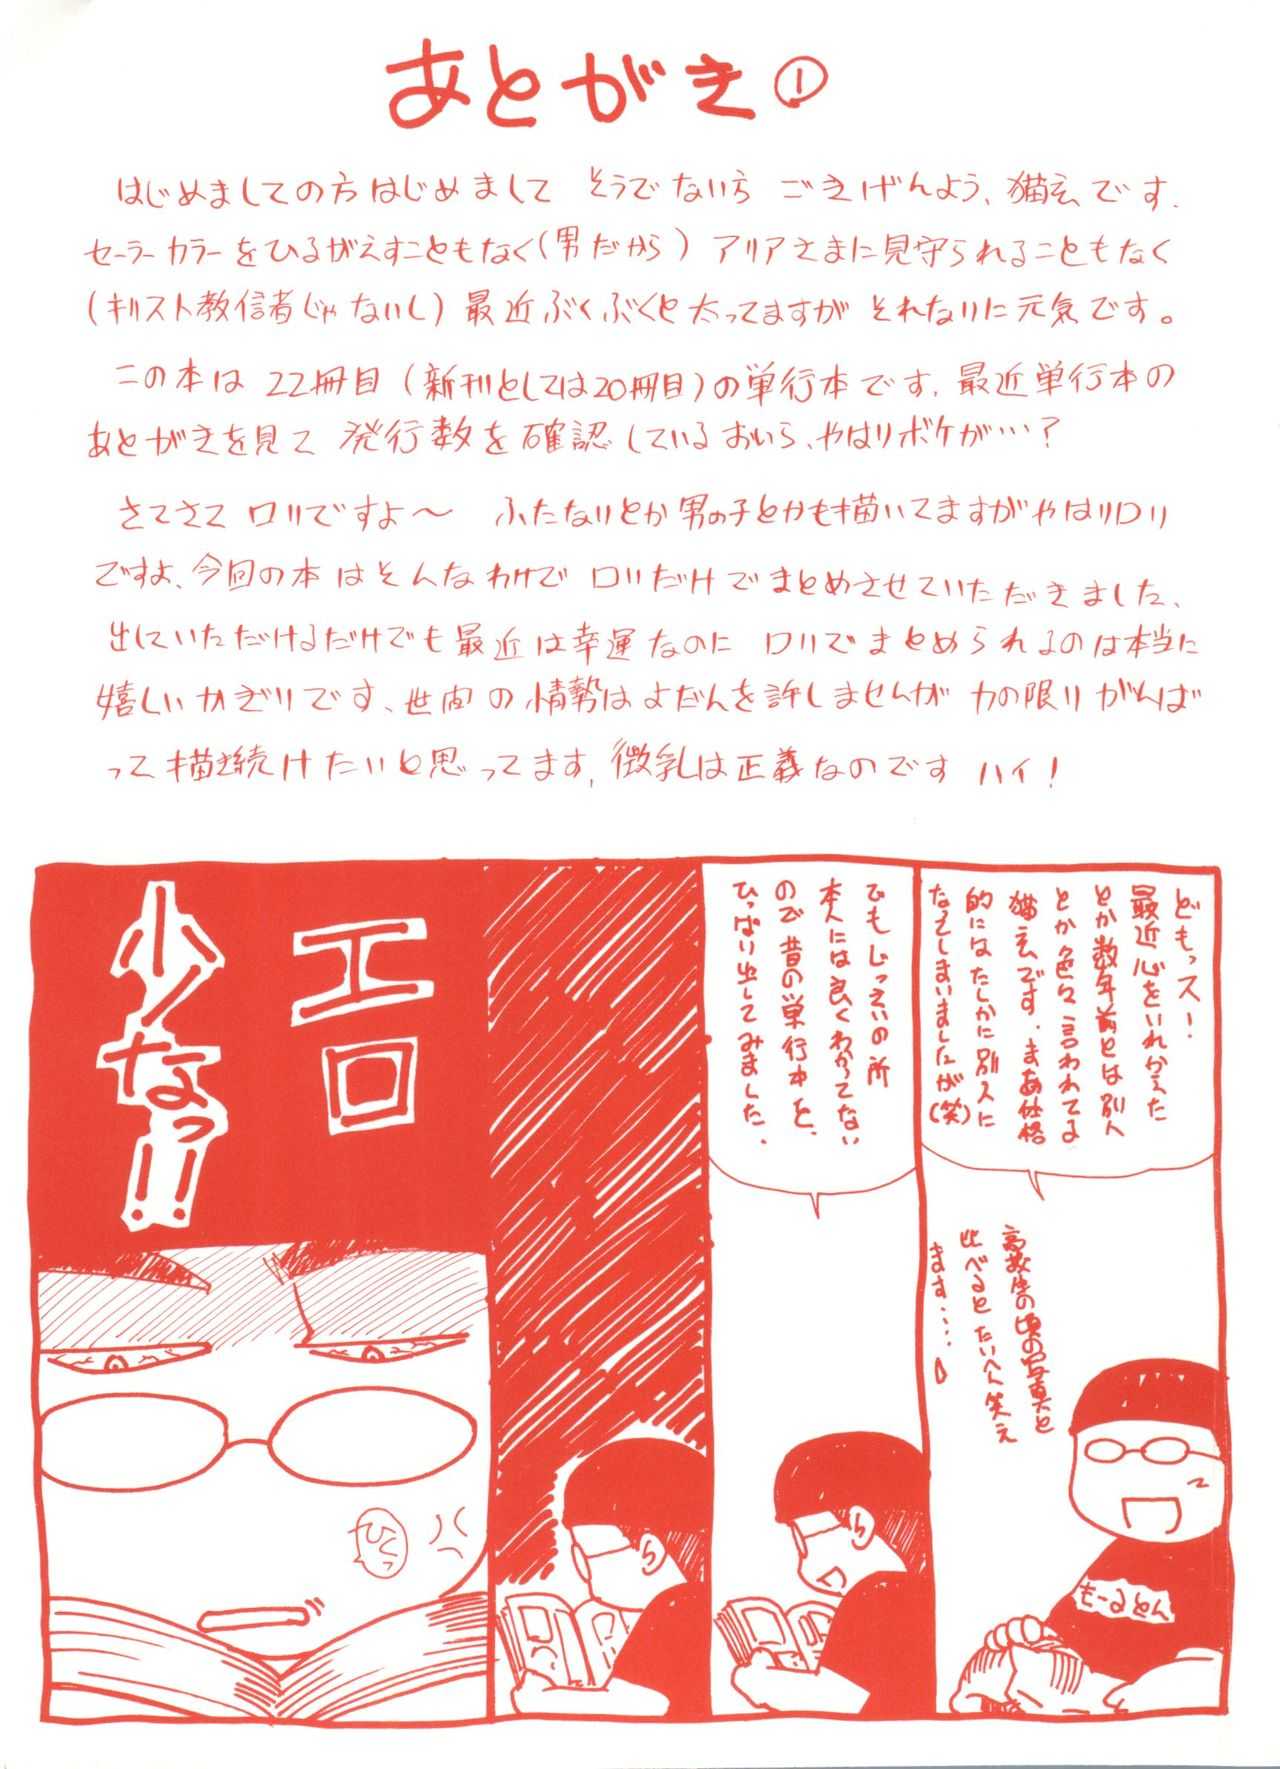 あとがき①
はじめましての方はじめまして そうでない方 ごきげんよう、猫玄です.
セーラーカラーをひるがえすこともなく(男だから) アリアさまに見守られることもなく
(キリスト教信者じゃないし) 最近ぶくぶくと太ってますが それなりに元気です。
この本は 22冊目 (新刊としては20冊目)の単行本です. 最近単行本の
あとがきを見て 発行数を確認しているおいら、やはりボケが…?
さてさて ロリですよ〜 ふたなりとか男の子とかも描いてますがやはりロリ
ですよ、今回の本はそんなわけで ロリだけでまとめさせていただきました、
出していただけるだけでも最近は幸運なのに ロリでまとめられるのは本当に
嬉しいかぎりです、世間の情勢はよだんを許しませんが 力の限りがんば
って描き続けたいと思ってます, 微乳は正義なのです ハイ!
どもっス!
最近心をいれかえた
とか数年前とは別人
とか色々言われてる
猫玄です. まあ仕格
的にはたしかに別人に
なってしまいましたが(笑)
高校生の頃の写真と
比べるとたいへん笑え
ます……
もーるとん
でもじっさいの所
本人には良くわかってない
ので昔の単行本を、
ひっぱり出してみました.
エロ
少なっ!!
ひくっ